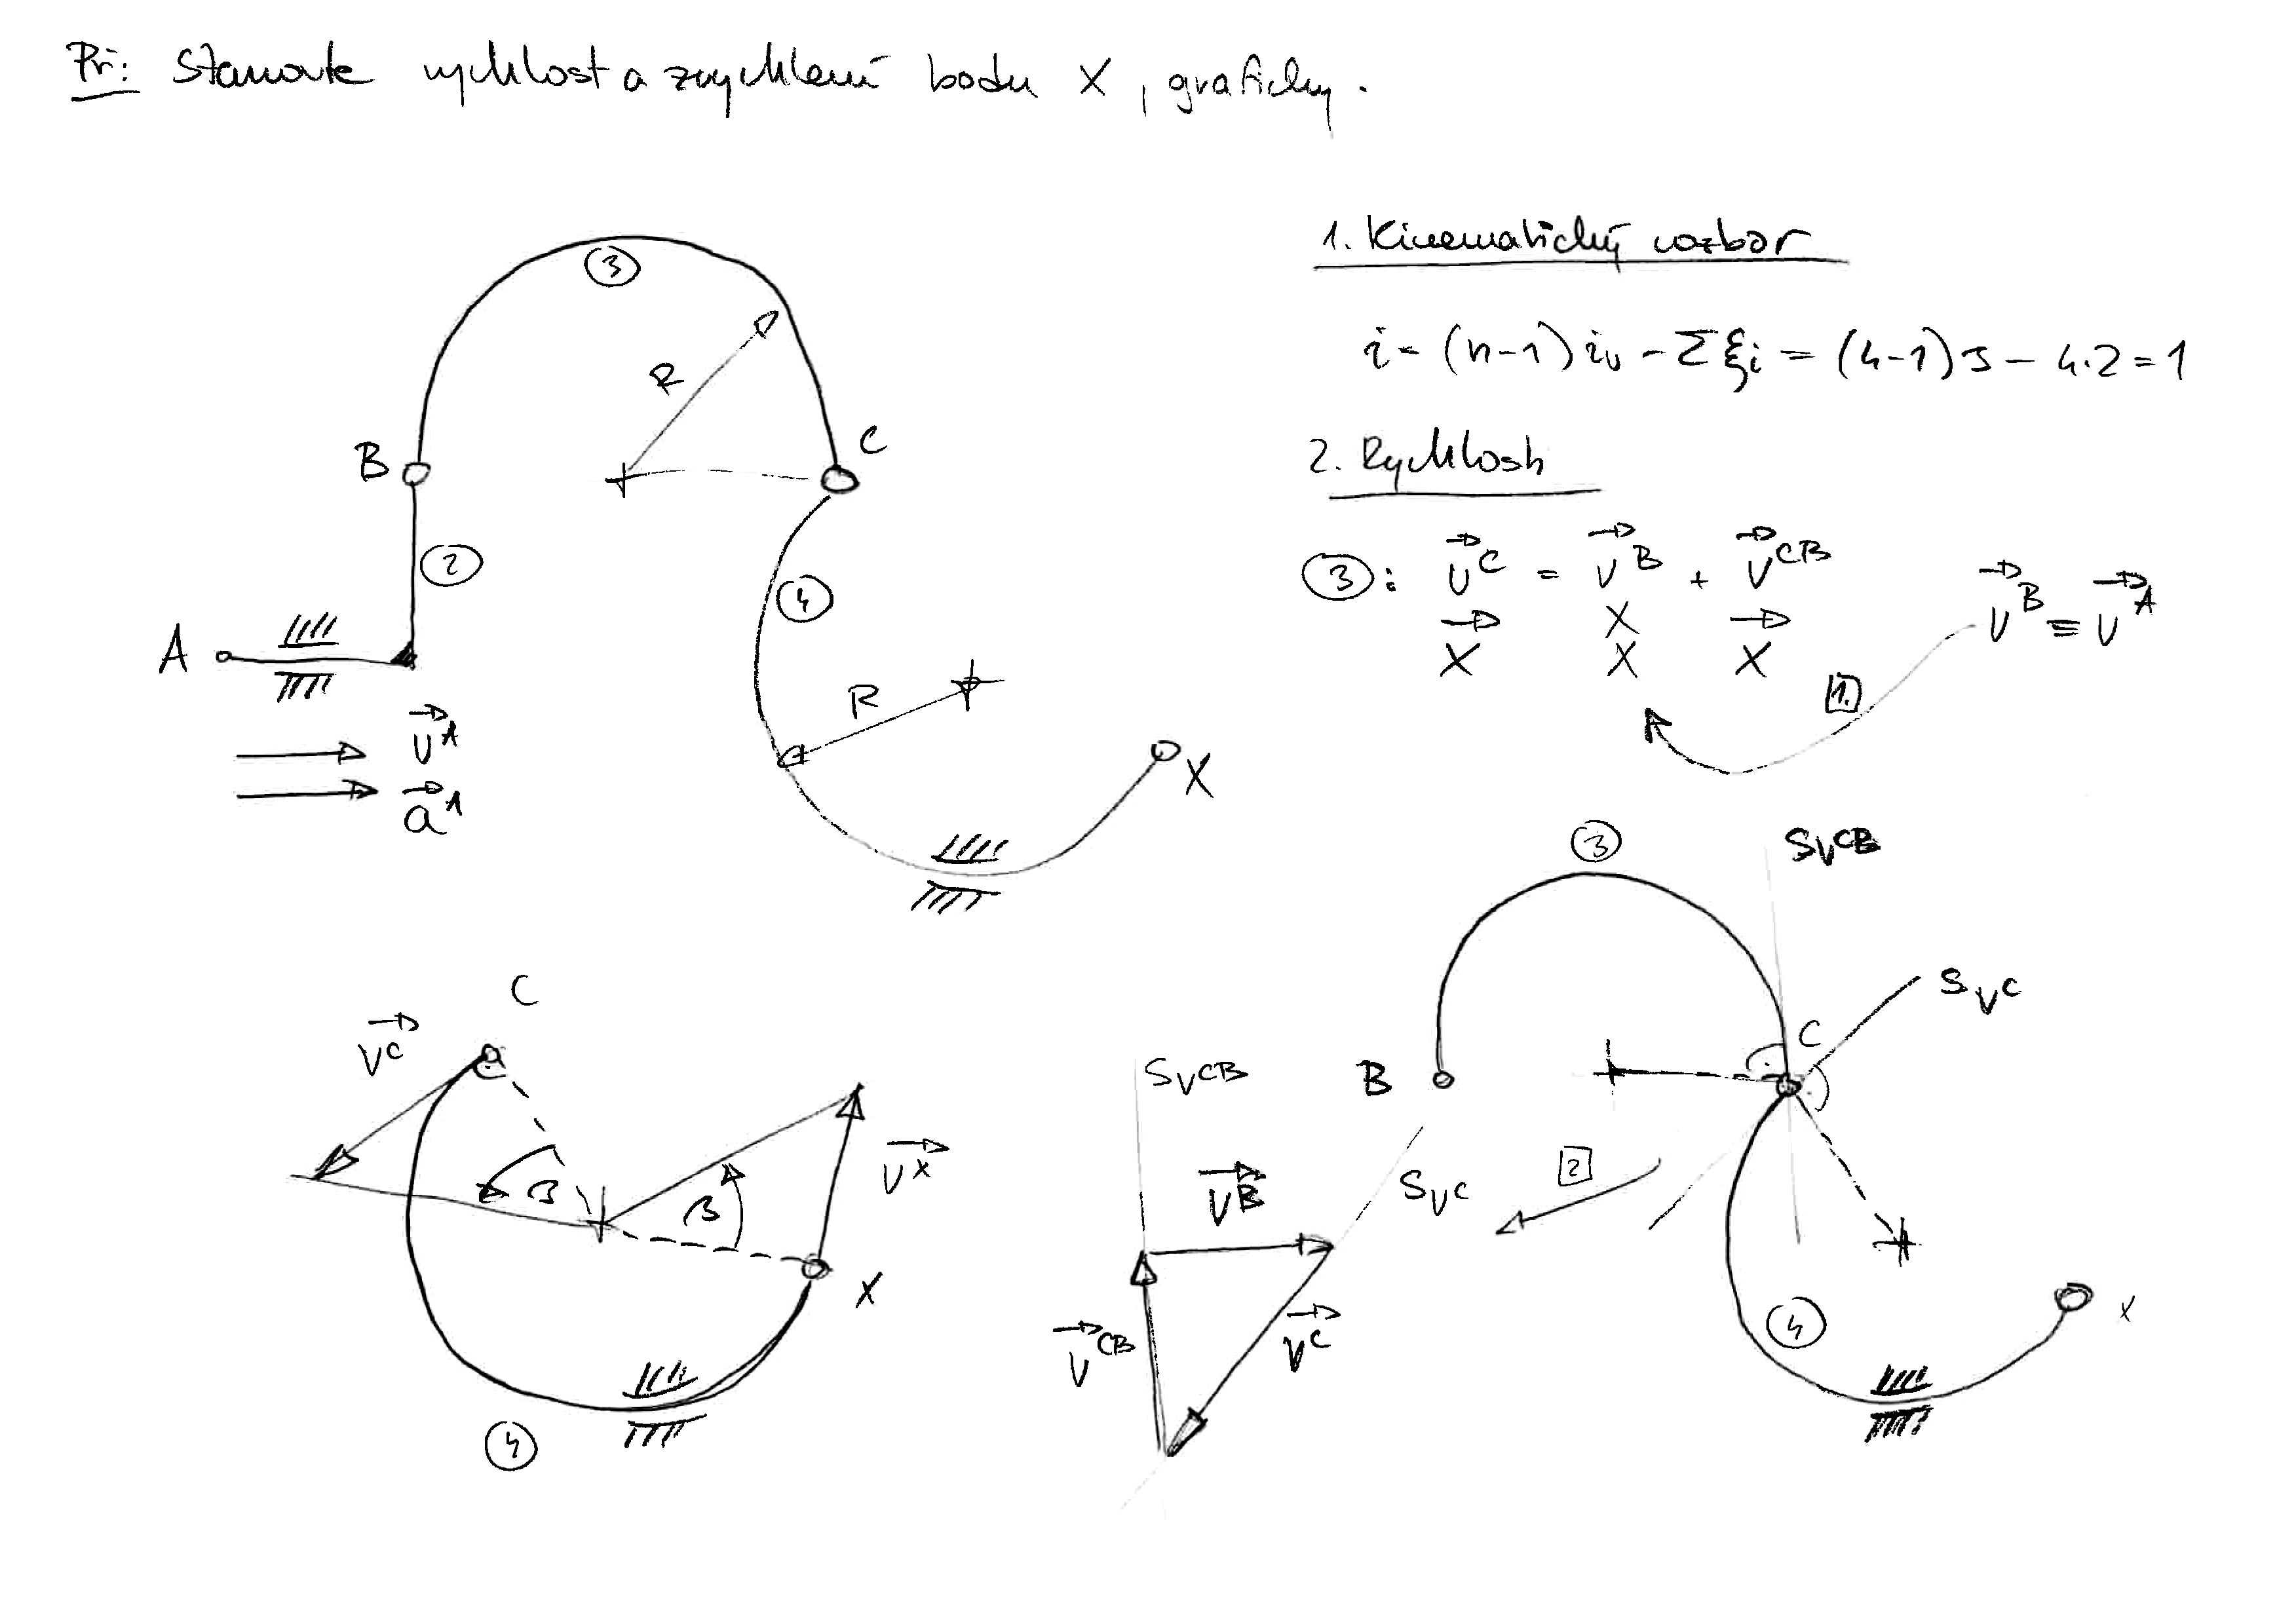 Př: Stanovte rychlost a zrychlení bodu X, graficky.
1. Kinematický rozbor
i = (n-1) iᵥ - Σξi = (4-1)3 - 4.2 = 1
2. Rychlosti
③: v⃗ᶜ = v⃗ᴮ + v⃗ᶜᴮ
v⃗ᴮ ≡ v⃗ᴬ
X X X
X
1.
3
R
B
C
2
4
A
R
X
v⃗ᴬ
a⃗ᴬ
3
sᵥCB
sᵥC
C
B
2
4
X
C
v⃗ᶜ
β
β
v⃗ˣ
X
4
sᵥCB
v⃗ᴮ
sᵥC
v⃗ᶜᴮ
v⃗ᶜ